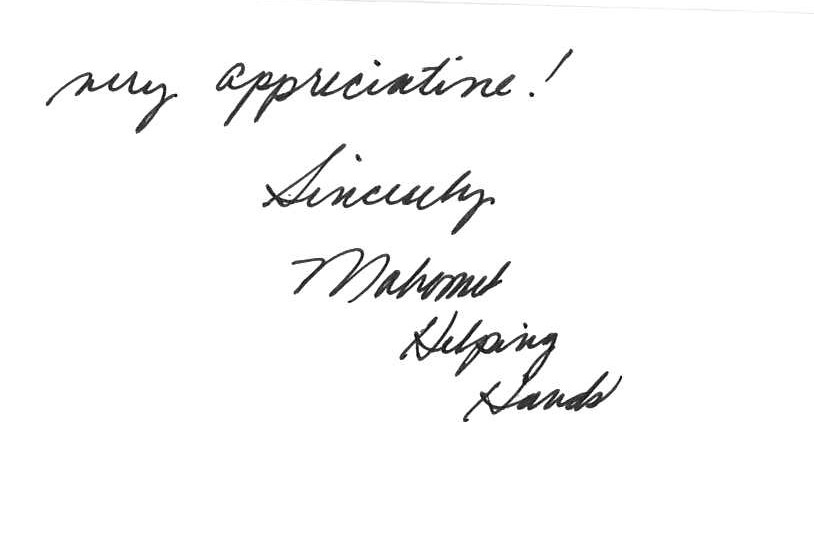 very appreciative!
Sincerely
Mahomet
Helping
Hands